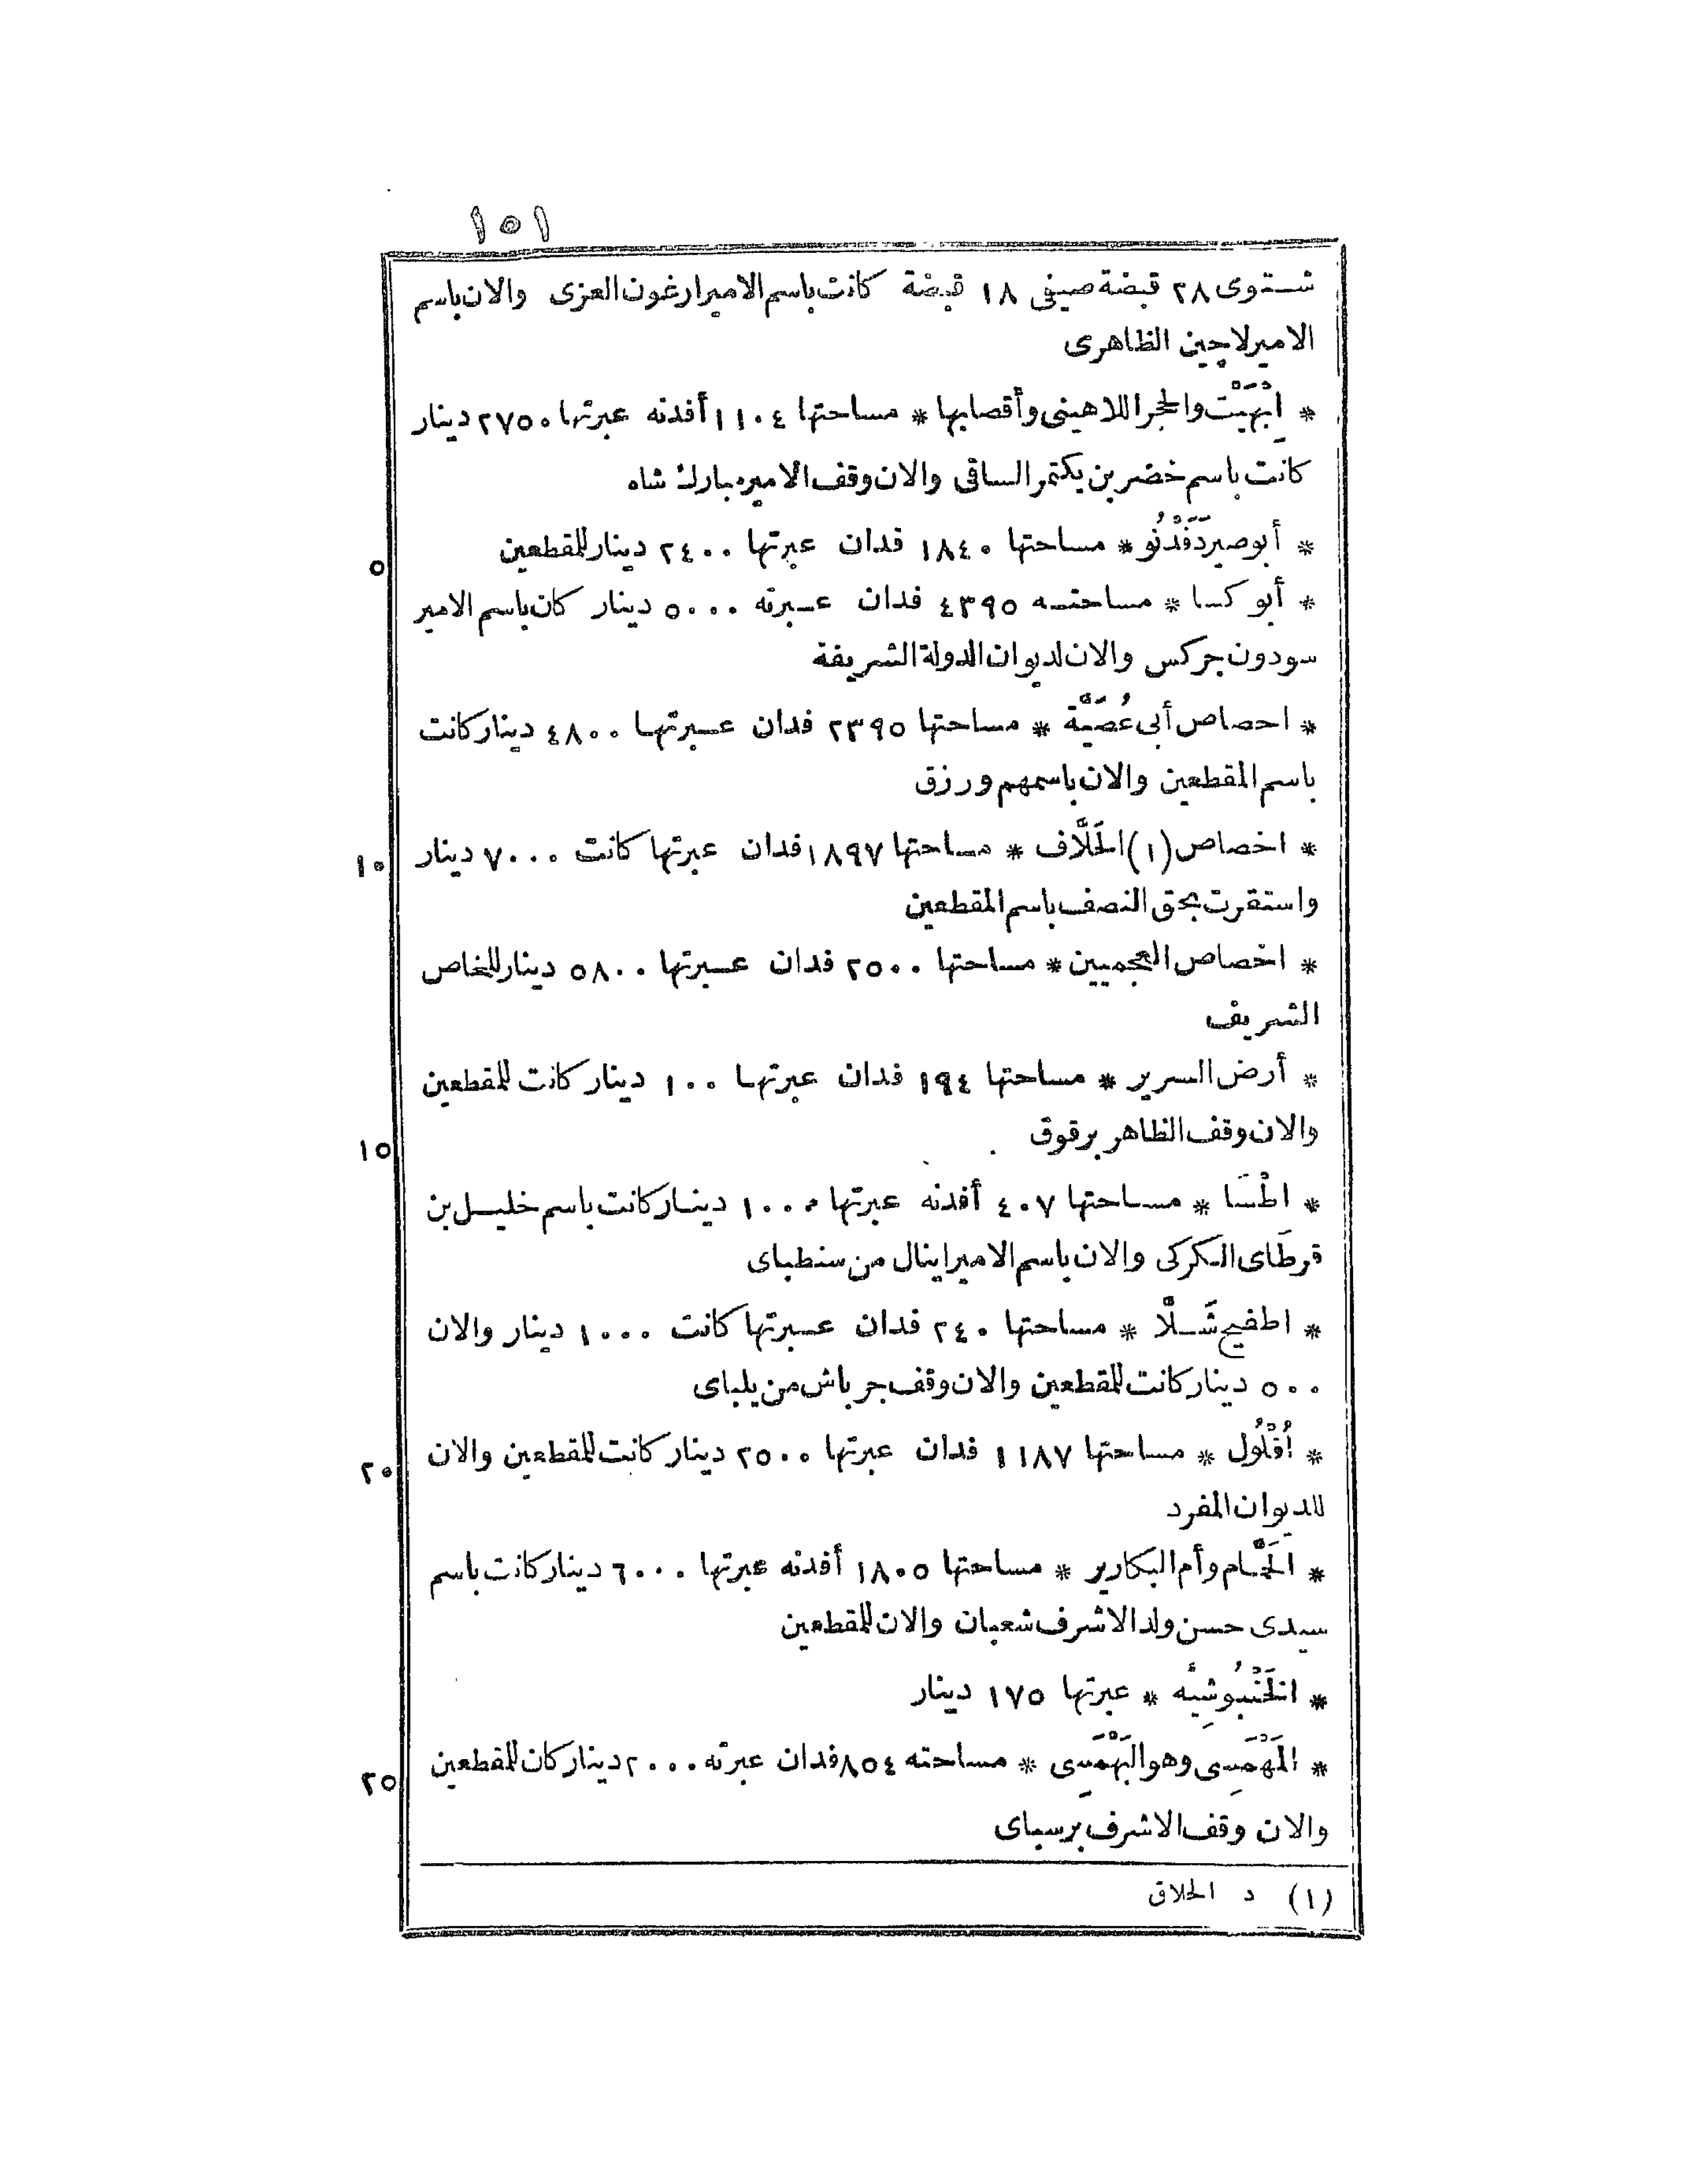 ١٥١
شتوى ٢٨ قبضة صيفى ١٨ قبضة كانت باسم الامير ارغون العزى والان باسم
الامير لاجين الظاهرى
* اِبْهَيْت والحجر اللاهينى وأقصابها * مساحتها ١١٠٤ أفدنه عبرتها ٢٧٥٠ دينار
كانت باسم خضر بن بكتمر الساقى والان وقف الامير مبارك شاه
* أبو صير دَفَدْنُو * مساحتها ١٨٤٠ فدان عبرتها ٢٤٠٠ دينار للمقطعين
٥
* أبو كسا * مساحته ٤٣٩٥ فدان عبرته ٥٠٠٠ دينار كان باسم الامير
سودون جركس والان لديوان الدولة الشريفة
* احصاص أبى عُصَيَّة * مساحتها ٢٣٩٥ فدان عبرتها ٤٨٠٠ دينار كانت
باسم المقطعين والان باسمهم ورزق
* اخصاص (١) الحَلَّاف * مساحتها ١٨٩٧ فدان عبرتها كانت ٧٠٠٠ دينار
١٠
واستقرت بحق النصف باسم المقطعين
* اخصاص العجميين * مساحتها ٢٥٠٠ فدان عبرتها ٥٨٠٠ دينار للخاص
الشريف
* أرض السرير * مساحتها ١٩٤ فدان عبرتها ١٠٠ دينار كانت للمقطعين
والان وقف الظاهر برقوق
١٥
* اطْسَا * مساحتها ٤٠٧ أفدنه عبرتها ١٠٠٠ دينار كانت باسم خليل بن
قرطَاى الكركى والان باسم الامير اينال من سنطباى
* اطفيح شَلَّا * مساحتها ٢٤٠ فدان عبرتها كانت ١٠٠٠ دينار والان
٥٠٠ دينار كانت للمقطعين والان وقف جرباش من يلباى
* اُقْلُول * مساحتها ١١٨٧ فدان عبرتها ٢٥٠٠ دينار كانت للمقطعين والان
٢٠
للديوان المفرد
* الحَمَّام وأم البكارير * مساحتها ١٨٠٥ أفدنه عبرتها ٦٠٠٠ دينار كانت باسم
سيدى حسن ولد الاشرف شعبان والان للمقطعين
* الخَنْبُوشِيَّه * عبرتها ١٧٥ دينار
* المَهْمَسِى وهو البَهْمَسِى * مساحته ٨٥٤ فدان عبرته ٢٠٠٠ دينار كان للمقطعين
٢٥
والان وقف الاشرف برسباى
(١) د الحلاق